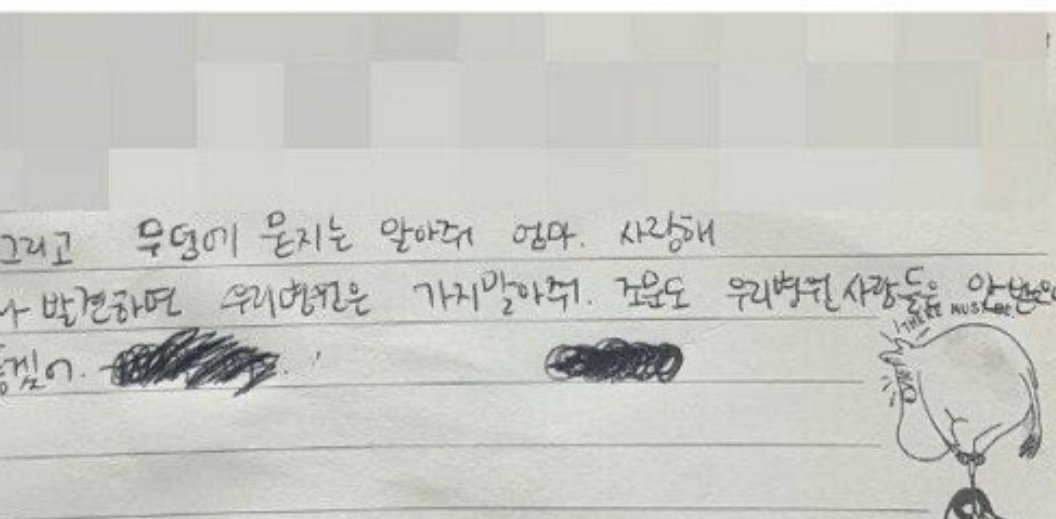 그리고 무덤에 묻지는 말아줘 엄마. 사랑해
나 발견하면 우리병원은 가지말아줘. 조문도 우리병원 사람들은 안받으면
좋겠어.
THERE MUST BE